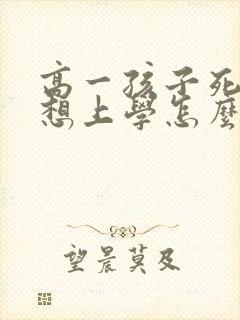 高一孩子死
想上學怎麼
望晨莫及